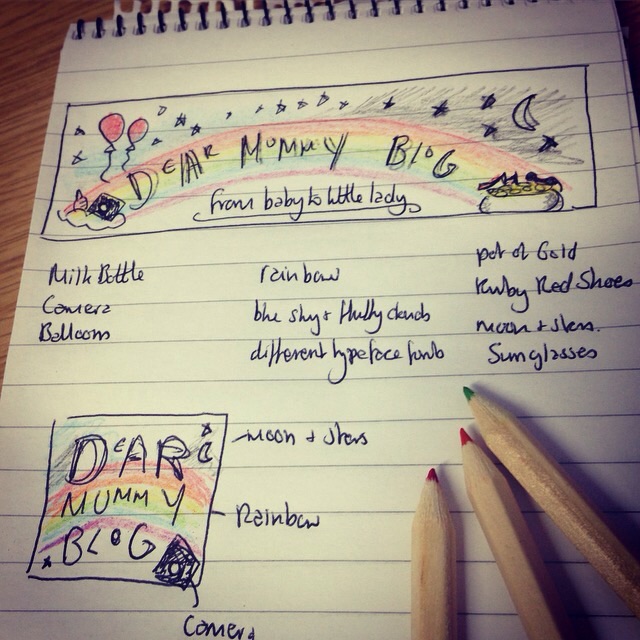 DEAR MUMMY BLOG
from baby to little lady
Milk Bottle
Camera
Balloons
rainbow
blue sky + fluffy clouds
different typeface fonts
pot of Gold
Ruby Red Shoes
moon + stars.
Sunglasses
DEAR
MUMMY
BLOG
moon + stars
Rainbow
Camera